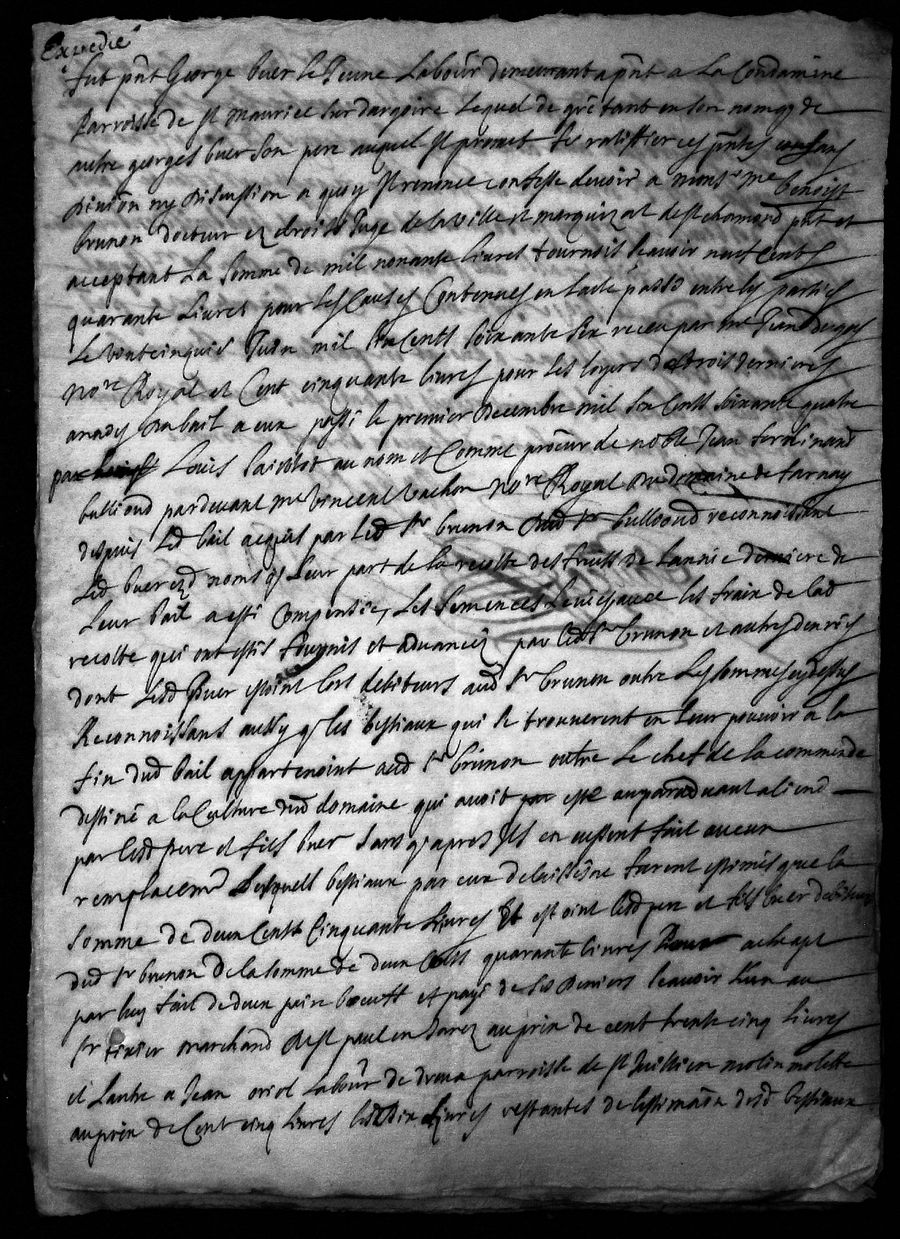 Expedié
fut pnt George buer le Jeune Labour demeurant a pnt a La Condamine
Parroisse de st maurice sur dargoire Lequel de gré tant en son nom q de
autre georges buer son pere auquel Il promet fe ratiffier ces pntes sans
division ny discution a quoy Il renonce confesse devoir a monsr me benoist
brunon docteur ez droits Juge de la ville et marquizat de st chamond pnt et
acceptant La somme de mil nonante livres tournois scavoir neuf cents
quarante Livres pour les causes Contenues en lacte passé entre les parties
Le vintcinquie Juin mil six Cents soixante six receu par me Jean
nore Royal et Cent cinquante livres pour les loyers des trois dernieres
annees du bail a eux passé le premier decembre mil six Cents soixante quatre
par Louis au nom et Comme procur de noble Jean ferdinand
bullioud pardevant me vincent bachon nore Royal du domaine de tarnay
despuis Led bail acquis par Led sr brunon dud sr bullioud reconnoissant
Led buer ezd noms q Leur part de la recolte des fruits de lannée derniere de
Leur bail a esté Compensée, Les semences les frain de lad
recolte qui ont estés fournis et advancés par led sr brunon et autres denrées
dont Lesd buer estoint lors debiteurs aud sr brunon outre Les sommes cydessus
Reconnoissant aussy q les bestiaux qui se trouverent en Leur pouvoir a la
fin dud bail appartenoint aud sr brunon outre Le chef de la commande
destiné a la Culture dud domaine qui avoit esté auparadvant aliené
par lesd pere et fils buer sans q apres Ils en eussent fait aucun
remplacemt Lesquels bestiaux par eux delaissés ne furent estimés que la
somme de deux Cents Cinquante Livres Et estoint lesd pere et fils buer debiteurs
dud sr brunon de la somme de deux Cents quarante livres Pour achapt
par luy fait de deux paire boeufs et payé de ses deniers scavoir lun au
sr tixier marchand de st paul en Jarez au prix de cent trente cinq livres
et Lautre a Jean oriol Labour de parroisse de st Jullien molin molette
au prix de Cent cinq livres Lesd dix Livres restantes de lestimaon desd bestiaux